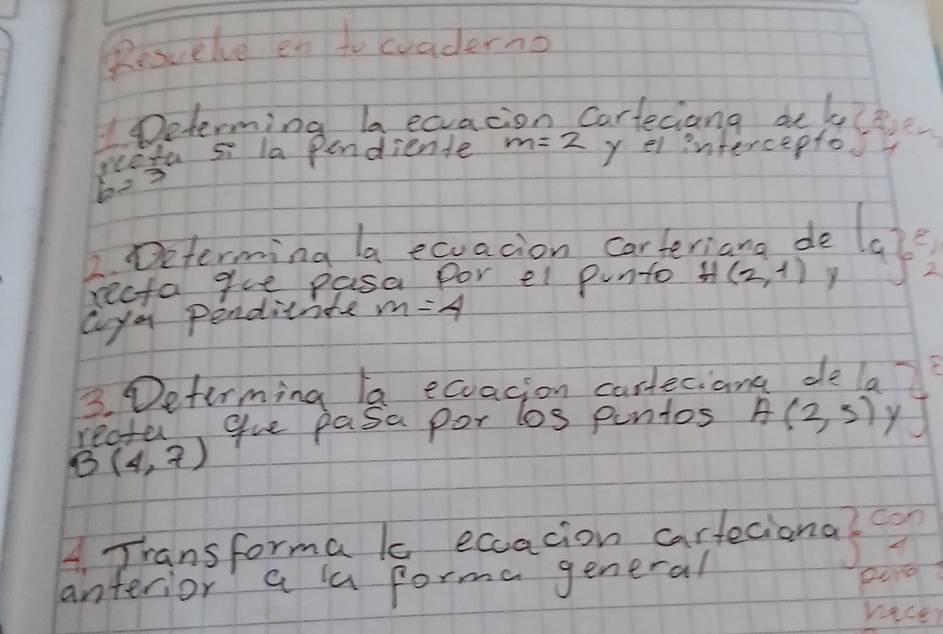 Resuelve en tu cuaderno
1 Determina la ecuacion Carteciana de la
recta si la Pendiente m=2 y el intercepto
b=3
2. Determina la ecuacion carteriana de la
recta que pasa por el punto A(2,1) y
cuya pendiente m=4
3. Determina la ecuacion carteciana de la
recta que pasa por los puntos A(2,3) y
B(4,7)
4. Transforma la ecuacion carteciana con
anterior a la forma general para
hacer